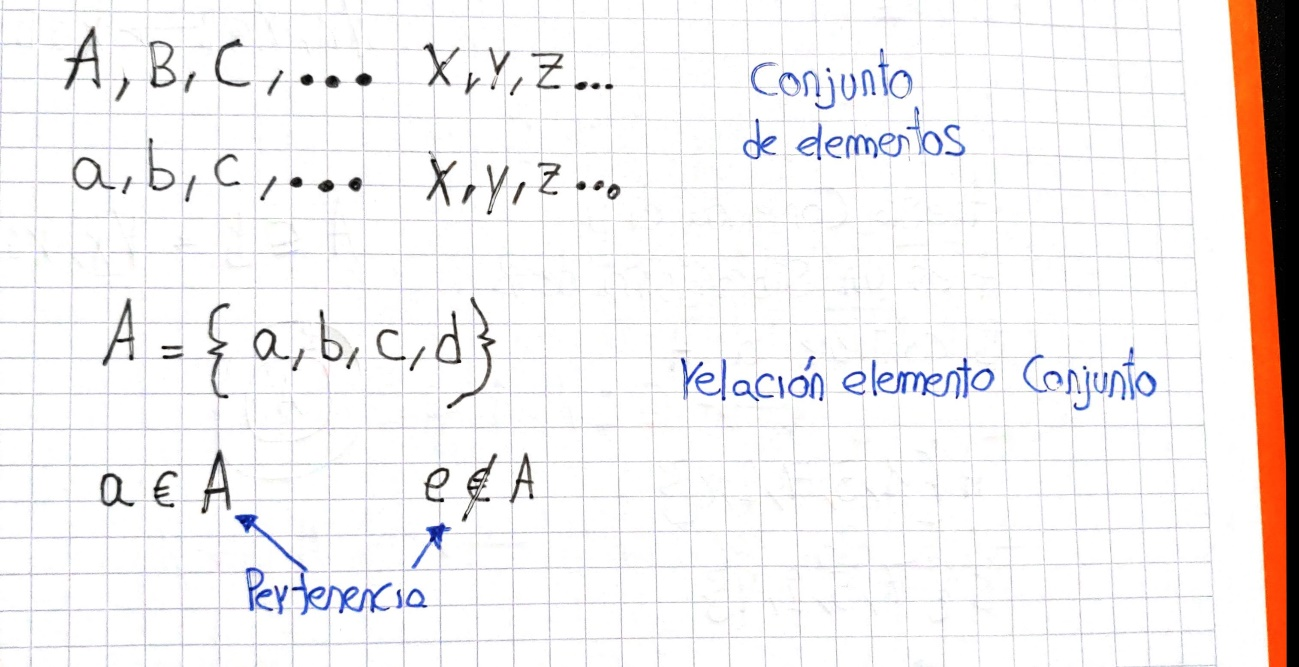 A, B, C, ... X, Y, Z ...
Conjunto
de elementos
a, b, c, ... x, y, z ...
A = { a, b, c, d }
relación elemento Conjunto
a ∈ A e ∉ A
Pertenencia